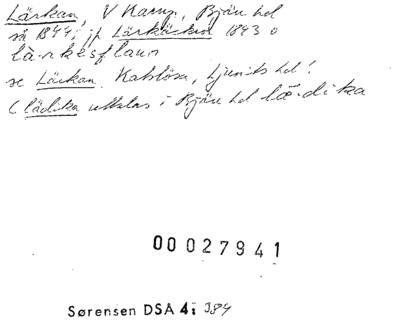 Lärkan, V Karup, Bjäre hd
så 1844; jf Lärkäckra 1843 o
se Lärkan. Katslösa, Ljunits hd!
(lädika uttalas i Bjäre hd lä·dika
00027941
Sørensen DSA 4: 384